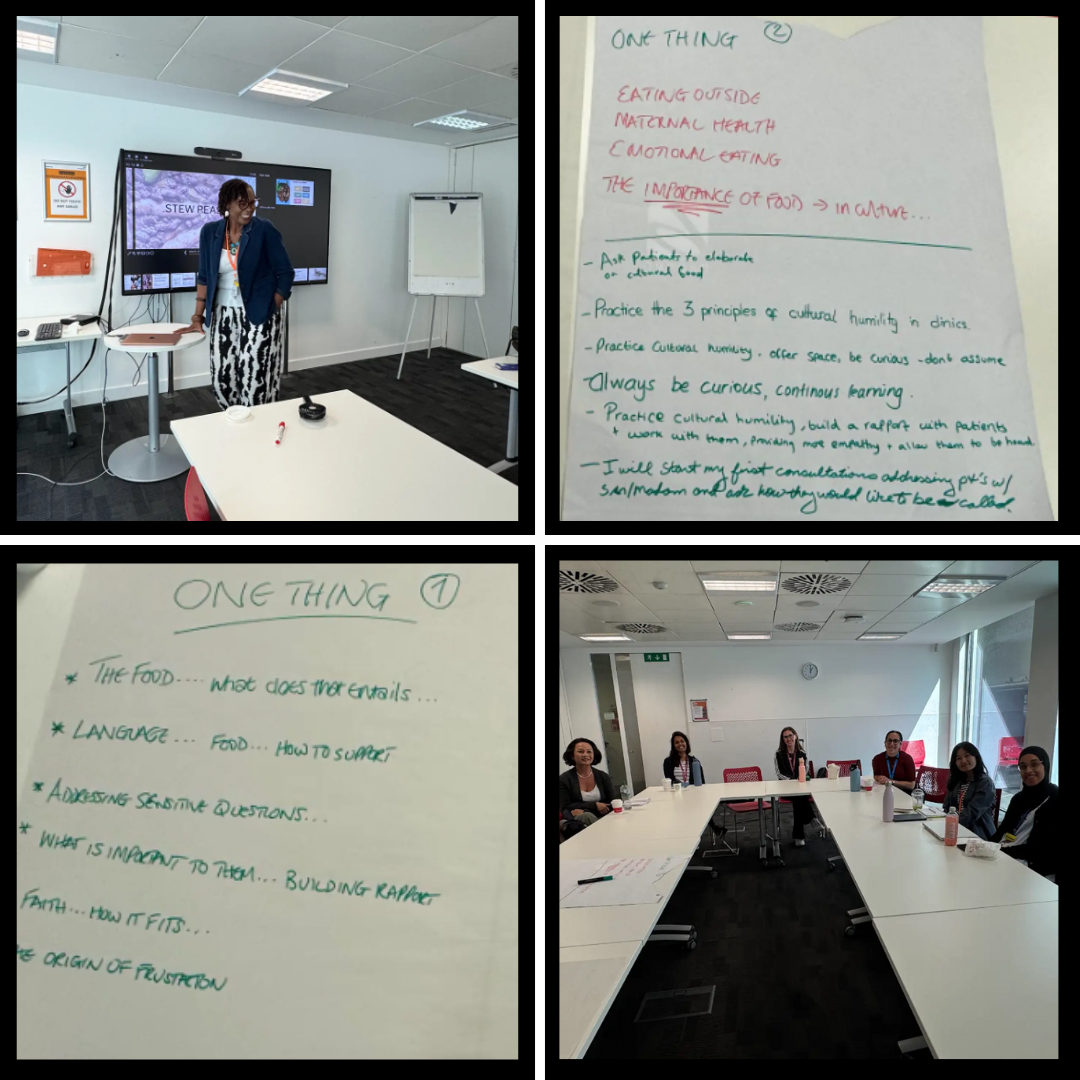 STEW PEAS
ONE THING 2
EATING OUTSIDE
MATERNAL HEALTH
EMOTIONAL EATING
THE IMPORTANCE OF FOOD → in culture...
- Ask patients to elaborate
on cultural food
- Practice the 3 principles of cultural humility in clinics.
- Practice Cultural humility, offer space, be curious - dont assume
- Always be curious, continous learning.
- Practice cultural humility, build a rapport with patients
+ work with them, providing more empathy + allow them to be heard
- I will start my first consultations addressing pt's w/
Sir/madam and ask how they would like to be called.
ONE THING 1
* THE FOOD.... what does that entails...
* LANGUAGE... FOOD... HOW TO SUPPORT
* ADDRESSING SENSITIVE QUESTIONS...
* WHAT IS IMPORTANT TO THEM... BUILDING RAPPORT
FAITH... HOW IT FITS...
HE ORIGIN OF FRUSTATION